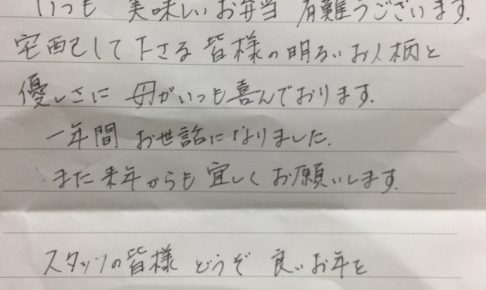 いつも 美味しいお弁当 有難うございます.
宅配して下さる 皆様の明るいお人柄と
優しさに 母がいつも喜んでおります.
一年間 お世話になりました.
また来年からも 宜しくお願いします.
スタッフの皆様 どうぞ 良いお年を